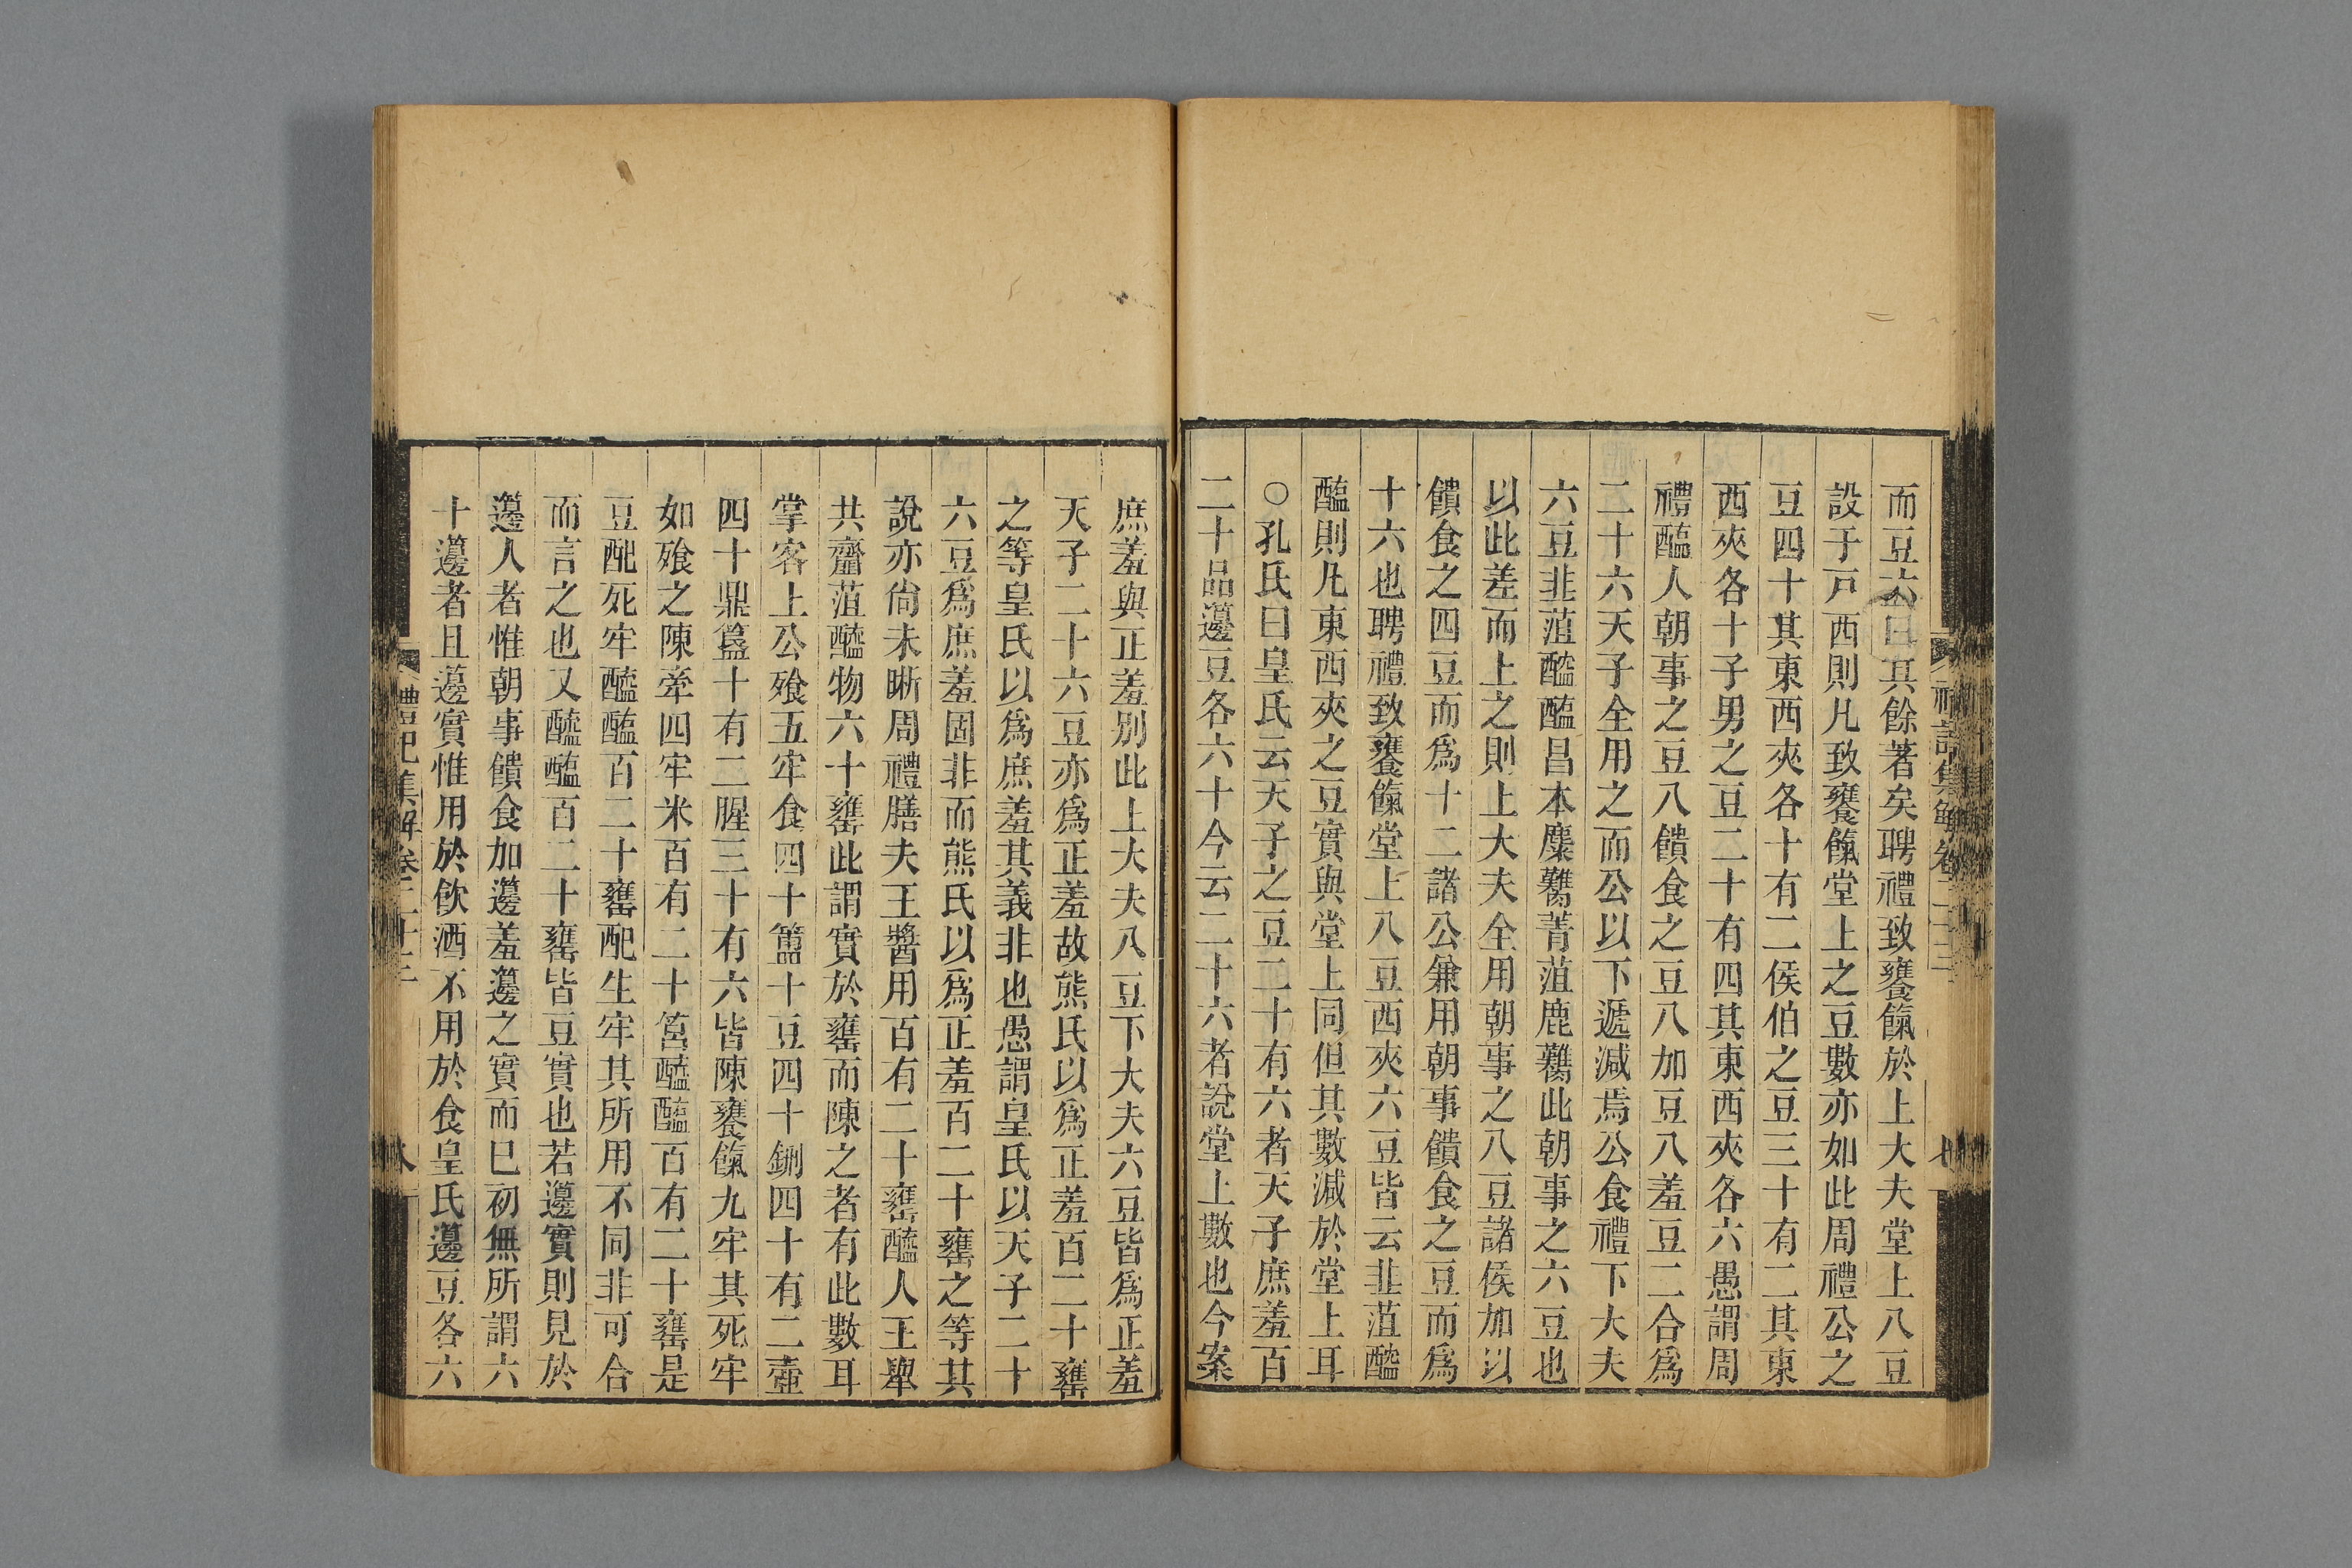 而豆六曰其餘著矣聘禮致饔餼於上大夫堂上八豆
設于戸西則凡致饔餼堂上之豆數亦如此周禮公之
豆四十其東西夾各十有二侯伯之豆三十有二其東
西夾各十子男之豆二十有四其東西夾各六愚謂周
禮醢人朝事之豆八饋食之豆八加豆八羞豆二合爲
二十六天子全用之而公以下遞減焉公食禮下大夫
六豆韭菹醯醢昌本麋臡菁菹鹿臡此朝事之六豆也
以此差而上之則上大夫全用朝事之八豆諸侯加以
饋食之四豆而爲十二諸公兼用朝事饋食之豆而爲
十六也聘禮致饔餼堂上八豆西夾六豆皆云韭菹醯
醢則凡東西夾之豆實與堂上同但其數減於堂上耳
○孔氏曰皇氏云天子之豆二十有六者天子庶羞百
二十品籩豆各六十今云二十六者說堂上數也今案
庶羞與正羞別此上大夫八豆下大夫六豆皆爲正羞
天子二十六豆亦爲正羞故熊氏以爲正羞百二十罋
之等皇氏以爲庶羞其義非也愚謂皇氏以天子二十
六豆爲庶羞固非而熊氏以爲正羞百二十罋之等其
說亦尙未晰周禮膳夫王醬用百有二十罋醯人王舉
共齏菹醯物六十罋此謂實於罋而陳之者有此數耳
掌客上公飱五牢食四十簠十豆四十鉶四十有二壺
四十鼎簋十有二腥三十有六皆陳饔餼九牢其死牢
如飱之陳牽四牢米百有二十筥醯醢百有二十罋是
豆配死牢醯醢百二十罋配生牢其所用不同非可合
而言之也又醯醢百二十罋皆豆實也若籩實則見於
籩人者惟朝事饋食加籩羞籩之實而已初無所謂六
十籩者且籩實惟用於飮酒不用於食皇氏籩豆各六